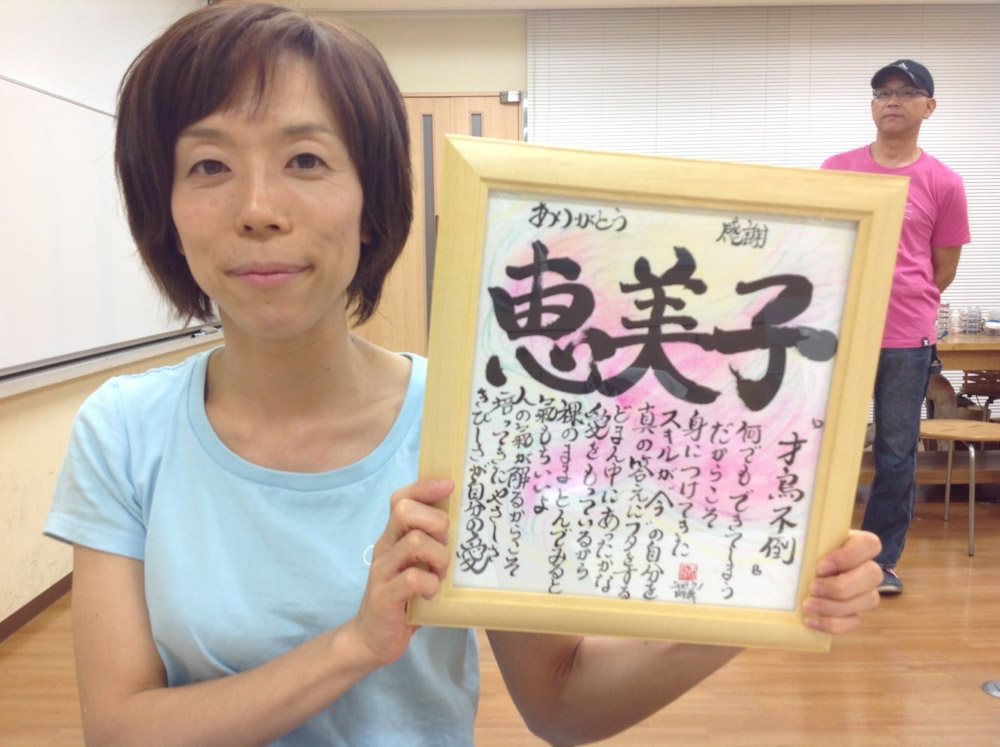 ありがとう
感謝
恵美子
『才鳥不倒』
何でもできてしまう
だからこそ
身につけてきた
スキルが、今の自分を
真の答えにフタをする
どまん中にあったかな
愛をもっているから
裸のままとんでみると
氣もちいいよ
人の氣が解るからこそ
培ってきたやさしさ
きびしさが自分の愛